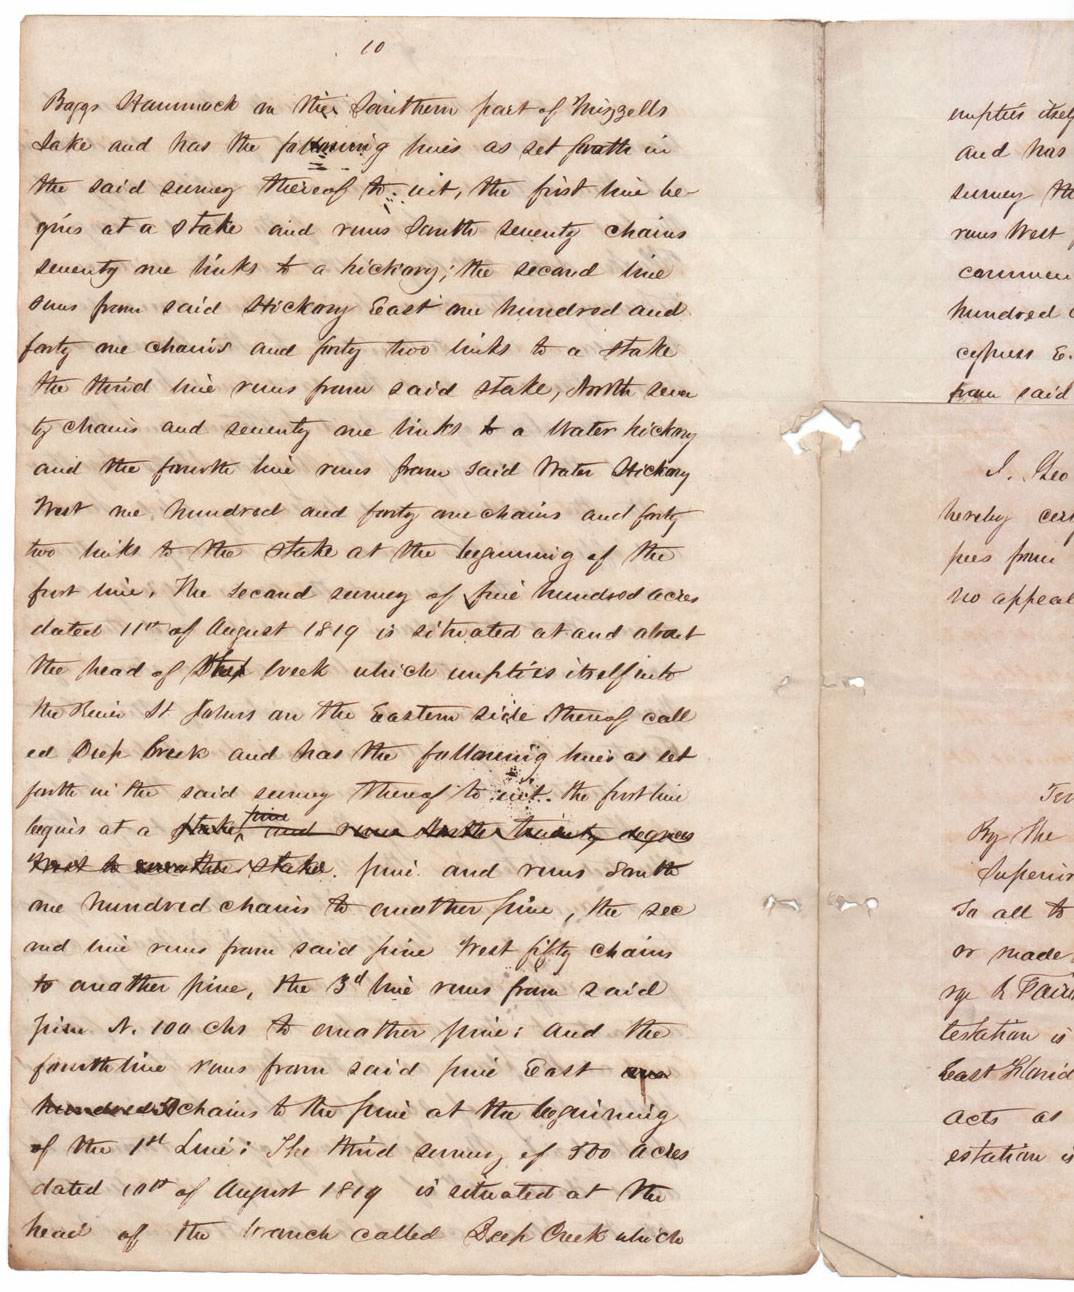 10
Boggs Hammock in the Southern part of Mizzells
Lake and has the following lines as set forth in
the said survey thereof to wit, the first line be-
gins at a stake and runs South seventy chains
seventy one links to a hickory; the second line
runs from said Hickory East one hundred and
forty one chains and forty two links to a stake
the third line runs from said stake, North seven
ty chains and seventy one links to a Water hickory
and the fourth line runs from said Water Hickory
West one hundred and forty one chains and forty
two links to the stake at the beginning of the
first line. The second survey of five hundred acres
dated 11th of August 1819 is situated at and about
the head of Creek which empties itself into
the River St Johns on the Eastern side thereof call
ed Deep Creek and has the following lines as set
forth in the said survey thereof to wit. the first line
begins at a stake pine and runs South twenty degrees
West to another stake. pine and runs South
one hundred chains to another pine, the sec
ond line runs from said pine West fifty chains
to another pine, the 3d line runs from said
pine N. 100 chs to another pine; and the
fourth line runs from said pine East one
hundred chains to the pine at the beginning
of the 1st Line; The third survey of 500 acres
dated 10th of August 1819 is situated at the
head of the branch called Deep Creek which
empties itself
and has
survey the
runs West
commen
hundred c
cypress E.
from said
I, Geo
hereby cer
pies from
no appeal
By the
Superior
To all to
or made
rge R Fair
testation is
East Florid
acts as
estation is